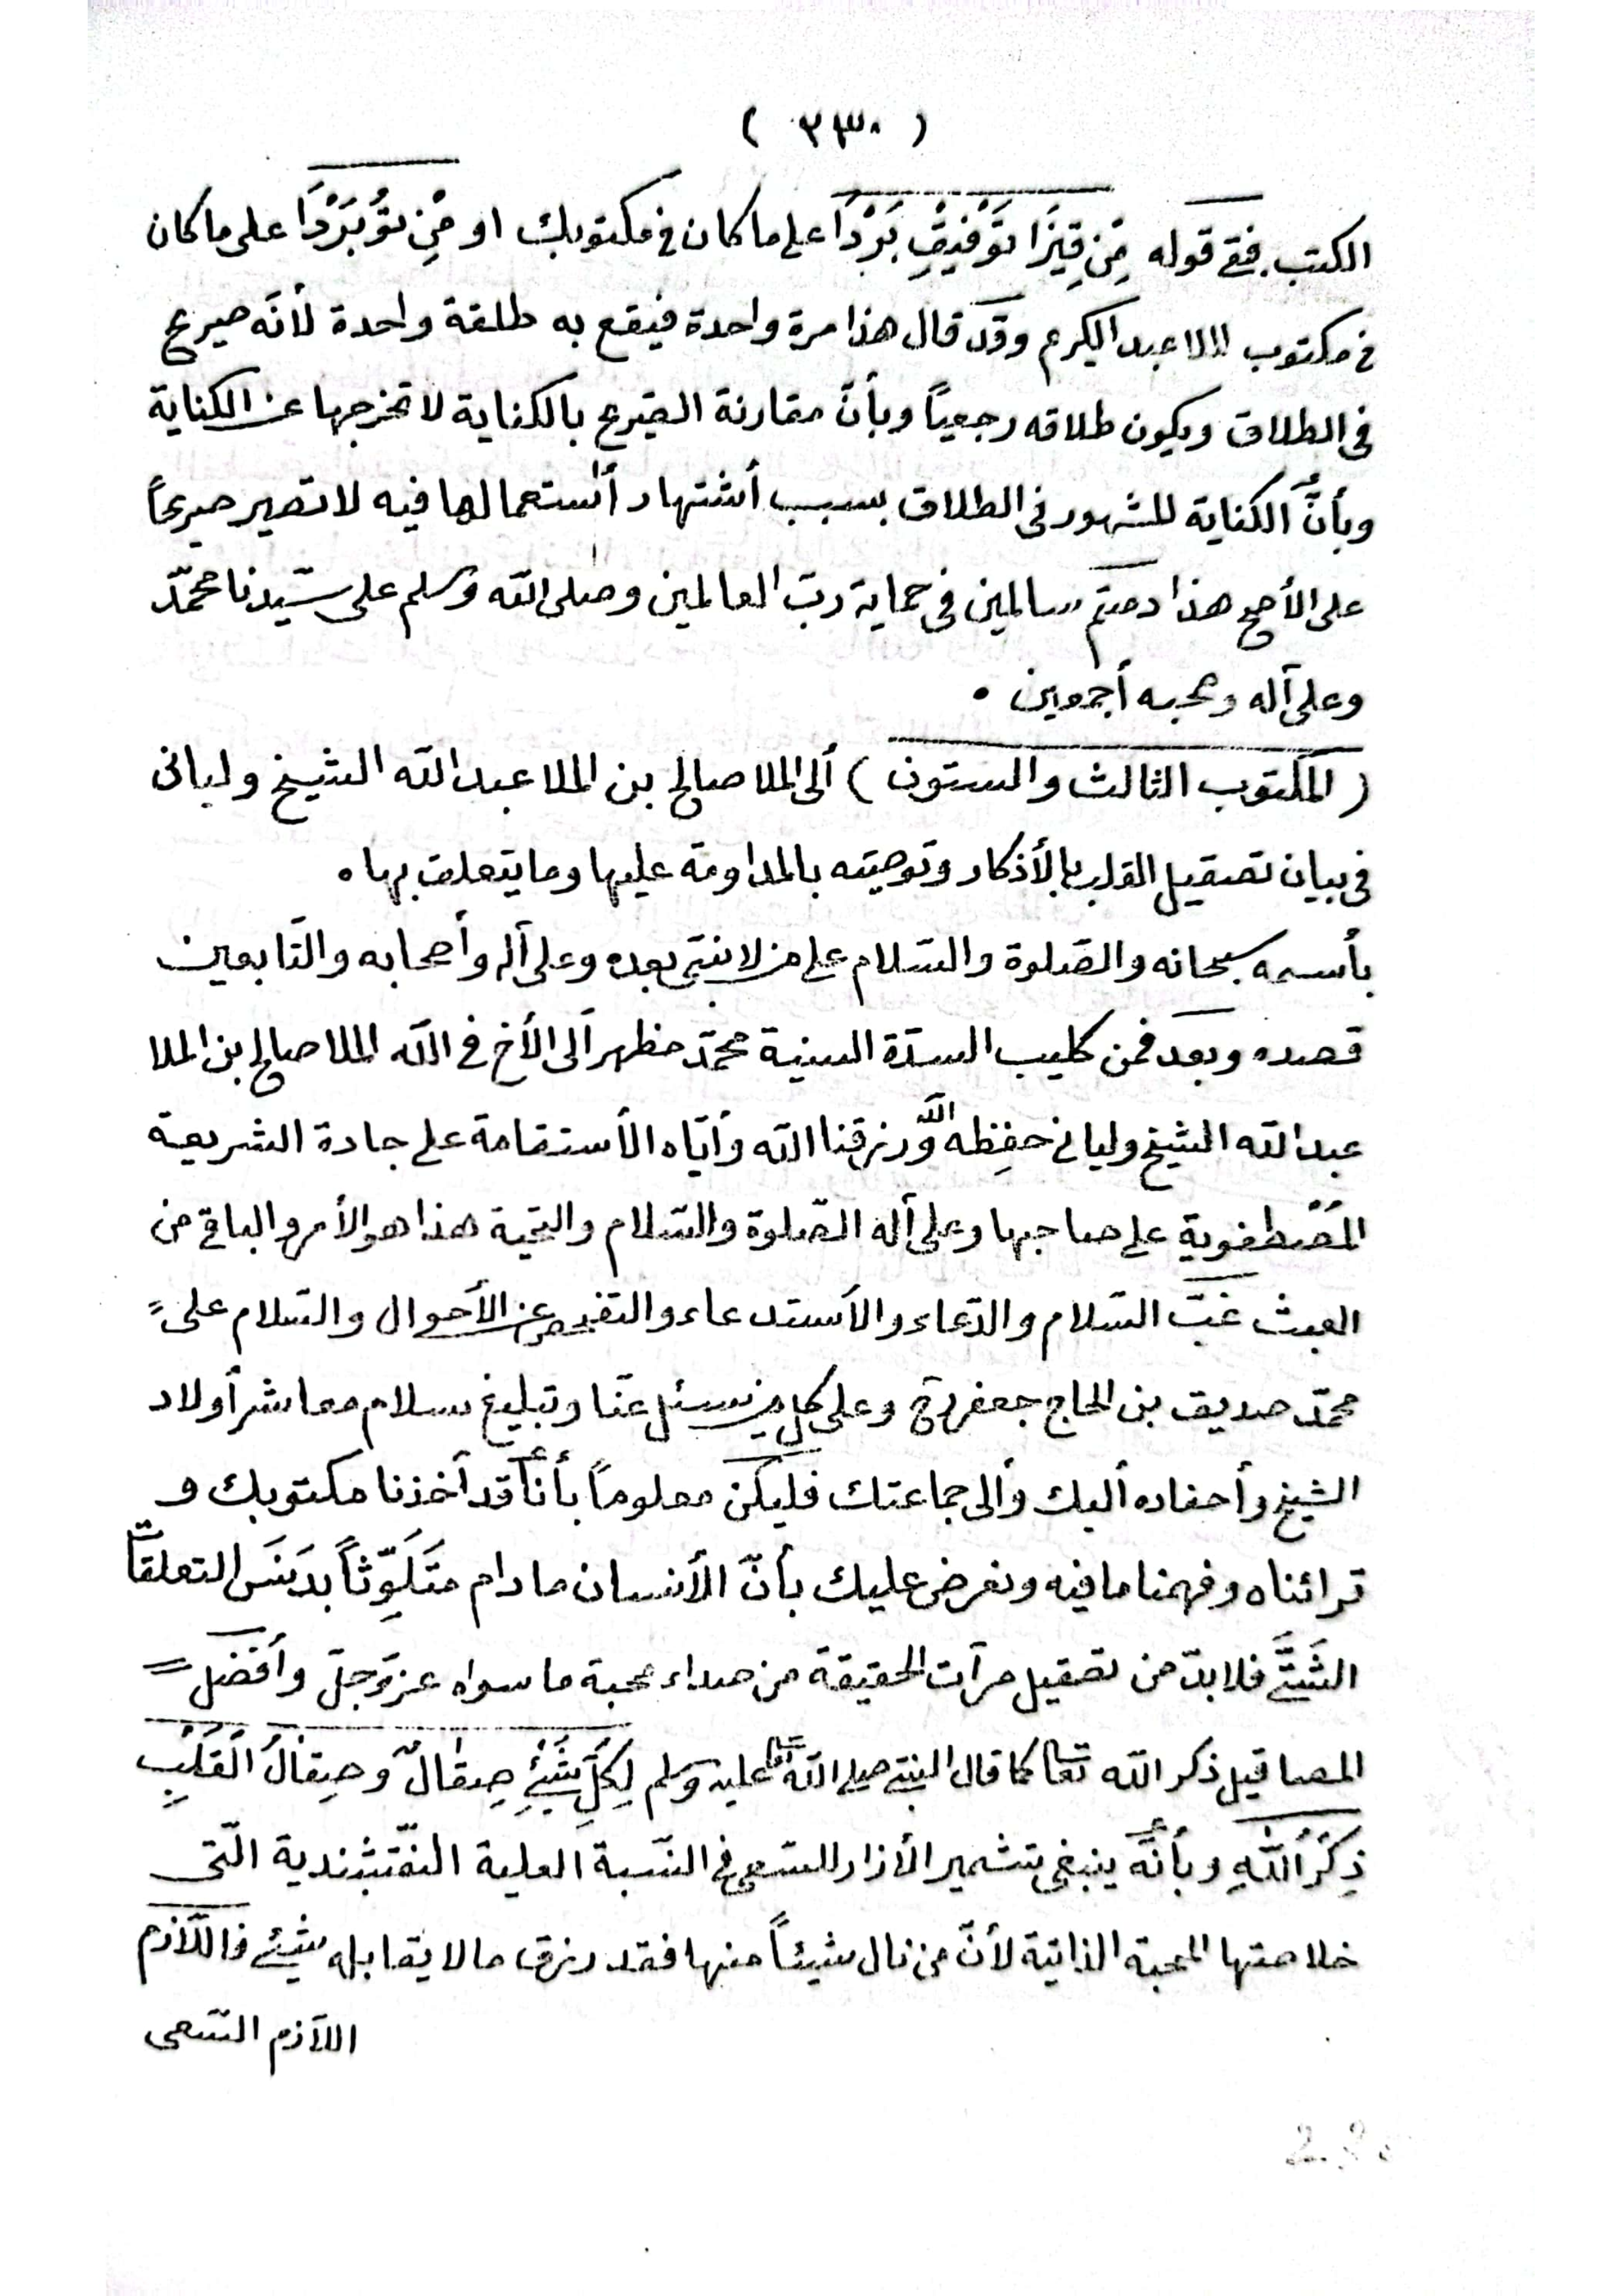 ( ٢٣٠ )
الكتب. ففى قوله مِّنْ قِيزَا تَوْفِيقْ بَرْدَا على ما كان فى مكتوبك او مِّنْ تُو بَرْدَا على ما كان
فى مكتوب الملا عبد الكريم وقد قال هذا مرة واحدة فيقع به طلقة واحدة لأنّه صريح
فى الطلاق ويكون طلاقه رجعياً وبأنّ مقارنة الصّريح بالكناية لا تخرجها عن الكناية
وبأنَّ الكناية للشهور فى الطلاق بسبب أشتهار أستعمالها فيه لا تصير صريحاً
على الأصح هذا دمتم سالمين فى حماية ربّ العالمين وصلى الله وسلم على سيّدنا محمّد
وعلى آله وصحبه أجمعين .
( المكتوب الثالث والستون ) ألى الملا صالح بن الملا عبد الله الشيخ وليانى
فى بيان تصقيل القلب بالأذكار وتوصيته بالمداومة عليها وما يتعلق بها .
بأسمه سبحانه والصّلوة والسّلام على من لا نبىّ بعده وعلى آله وأصحابه والتّابعين
قصده وبعد فمن كليب السدّة السنية محمّد مظهر ألى الأخ فى الله الملا صالح بن الملا
عبد الله الشيخ وليانى حفِظه الله ورزقنا الله وأيّاه الأستقامة على جادة الشريعة
المُصْطفوية على صاحبها وعلى آله الصّلوة والسّلام والتحية هذا هو الأمر والباقى من
العبث غبّ السّلام والدّعاء والأستدعاء والتفحص عن الأحوال والسّلام على =
محمّد صديق بن الحاج جعفر وعلى كل من يسئل عنّا وتبليغ سلام معاشر أولاد
الشيخ وأحفاده أليك وألى جماعتك فليكن معلوماً بأنّا قد أخذنا مكتوبك و
قرائناه وفهمنا ما فيه ونعرض عليك بأنّ الأنسان ما دام مَتَلَوِّثاً بدَنَسَ التعلقات
الشَتَّى فلا بدّ من تصقيل مرآت الحقيقة من صداء محبة ما سواه عزّ وجلّ وأفضل =
المصاقيل ذكر الله تعالى كما قال النبىّ صلى الله تعالى عليه وسلم لِكُلِّ شَيْئٍ صِقَالٌ وصِقالُ الْقَلْبِ
ذِكْرُ اللهِ وبأنّه ينبغى تشمير الأزار للسّعى فى النّسبة العلية النّقشبندية الّتى
خلاصتها المحبة الذاتية لأنّ من نال شيئاً منها فقد رزق ما لا يقابله شيئ فاللّازم
اللّازم السّعى